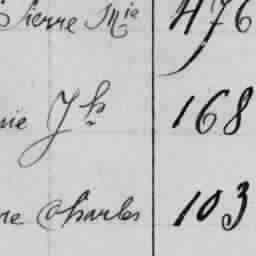 Pierre Mie 476
nie Jh 168
ne Charles 103